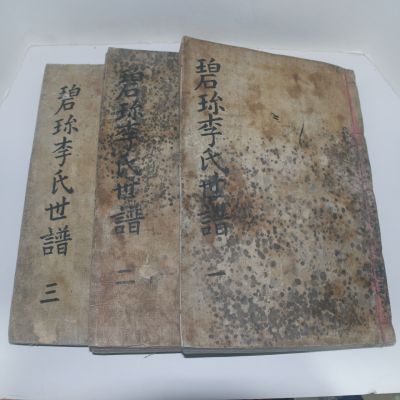 碧珎李氏世譜 一
碧珎李氏世譜 二
碧珎李氏世譜 三